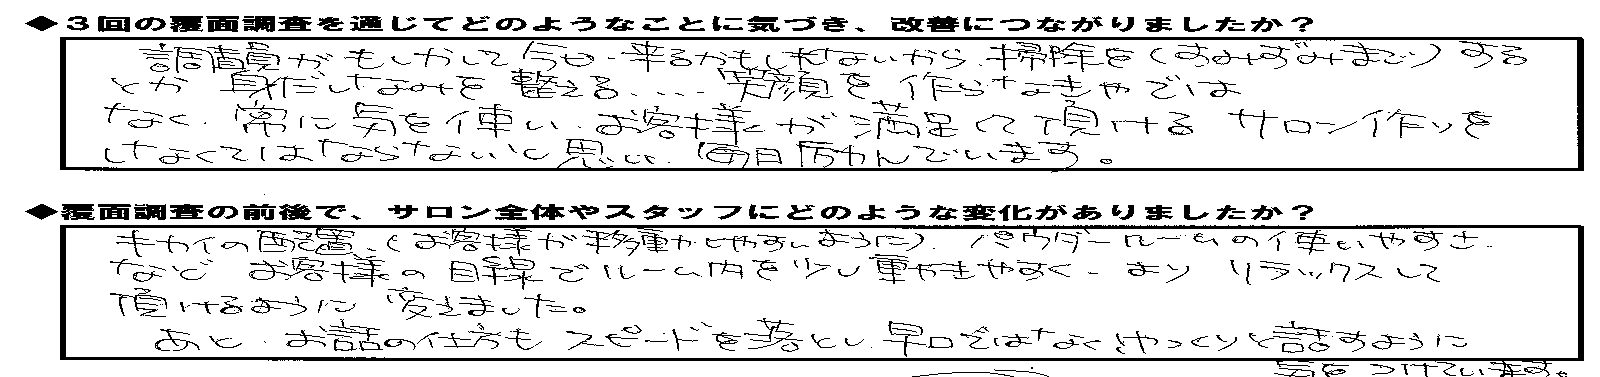 ◆３回の覆面調査を通じてどのようなことに気づき、改善につながりましたか？
調査員がもしかして今日、来るかもしれないから、掃除を（すみずみまで）する
とか 身だしなみを 整える、... 笑顔を 作らなきゃでは
なく、常に気を使い、お客様が満足して頂ける サロン作りを
しなくてはならないと思い、毎日励んでいます。
◆覆面調査の前後で、サロン全体やスタッフにどのような変化がありましたか？
キカイの配置、（お客様が移動しやすいように）、パウダールームの使いやすさ、
など お客様の目線でルーム内を少し動きやすく、より リラックスして
頂けるように 変えました。
あと、お話の仕方も スピードを落とし、早口ではなく、ゆっくりと話すように
気をつけています。